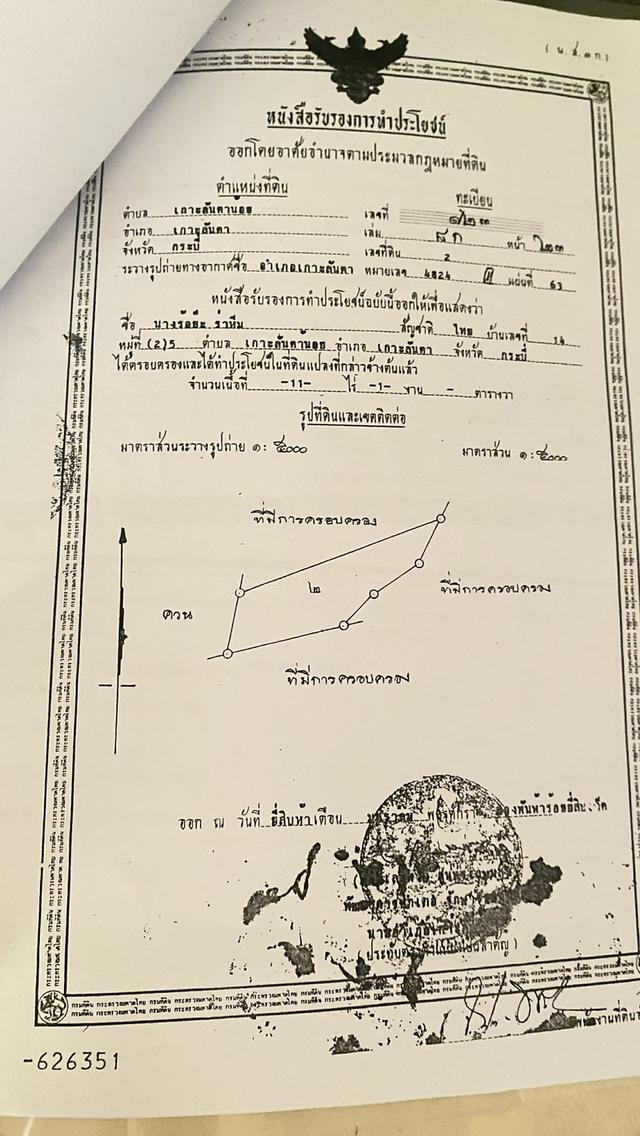 (น.ส.๓ก.)
หนังสือรับรองการทำประโยชน์
ออกโดยอาศัยอำนาจตามประมวลกฎหมายที่ดิน
ตำแหน่งที่ดิน
ทะเบียน
ตำบล เกาะลันตาน้อย
เลขที่ ๑๒๓
อำเภอ เกาะลันตา
เล่ม ๘ก หน้า ๒๓
จังหวัด กระบี่
เลขที่ดิน 2
ระวางรูปถ่ายทางอากาศชื่อ อำเภอเกาะลันตา หมายเลข 4824 II แผ่นที่ 63
หนังสือรับรองการทำประโยชน์ฉบับนี้ออกให้เพื่อแสดงว่า
ชื่อ นาง สัญชาติ ไทย บ้านเลขที่ 14
หมู่ที่ (2)5 ตำบล เกาะลันตาน้อย อำเภอ เกาะลันตา จังหวัด กระบี่
ได้ครอบครองและได้ทำประโยชน์ในที่ดินแปลงที่กล่าวข้างต้นแล้ว
จำนวนเนื้อที่ -11- ไร่ -1- งาน - ตารางวา
รูปที่ดินและเขตติดต่อ
มาตราส่วนระวางรูปถ่าย ๑:๕๐๐๐
มาตราส่วน ๑:๕๐๐๐
ที่มีการครอบครอง
๒
ที่มีการครอบครอง
ควน
ที่มีการครอบครอง
ออก ณ วันที่ ยี่สิบห้า เดือน
(ประทับตรา
-626351